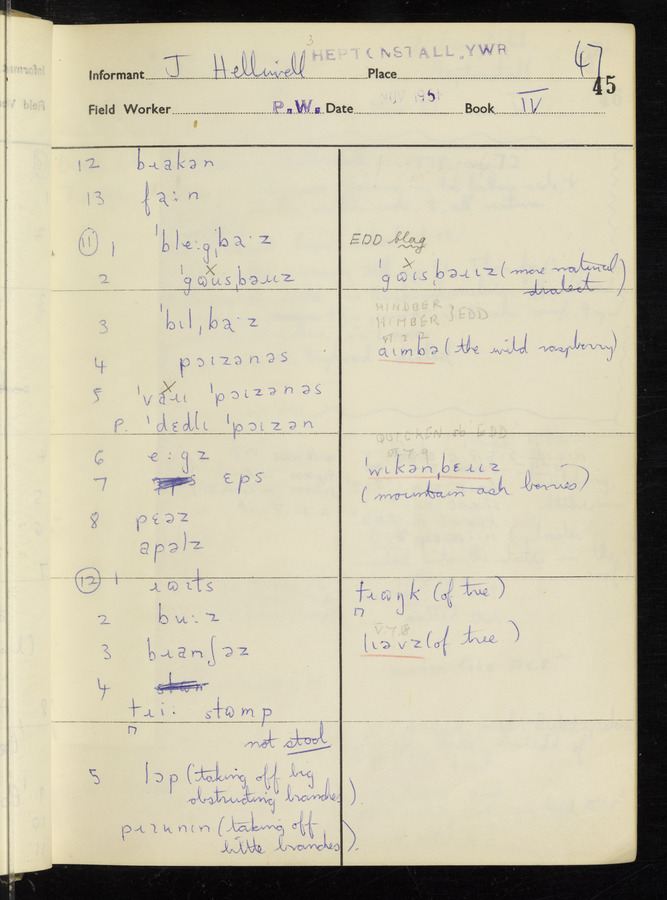 3
HEPTONSTALL, YWR
47
Informant J Helliwell Place
45
Field Worker P.W. Date NOV 195 Book IV
12 bɹakən
13 fa:n
11 1 ˈble:gˌba·z
EDD blag
2 ˈgɷusˌbəɹɪz
ˈgɷɪsˌbəɹɪz (more natural dialect)
3 ˈbɪlˌba·z
HINDBER
HIMBER } EDD
aɪmbə (the wild raspberry)
4 pɔɪzənəs
5 ˈvaɹɪ ˈpɔɪzənəs
P. ˈdɛdlɪ ˈpɔɪzən
QUICKEN sb EDD
6 e:gz
ˈwɪkənˌbɛɹɪz
7 ɛps
(mountain ash berries)
8 pɛəz
apəlz
12 1 ɹɷɪts
tɹɷŋk (of tree)
2 bu:z
V.7.8
3 bɹanʃəz
lɪəvz (of tree)
4
tɹi: stɷmp
not stool
5 lɔp (taking off big
obstructing branches).
pɹʊunɪn (taking off
little branches).